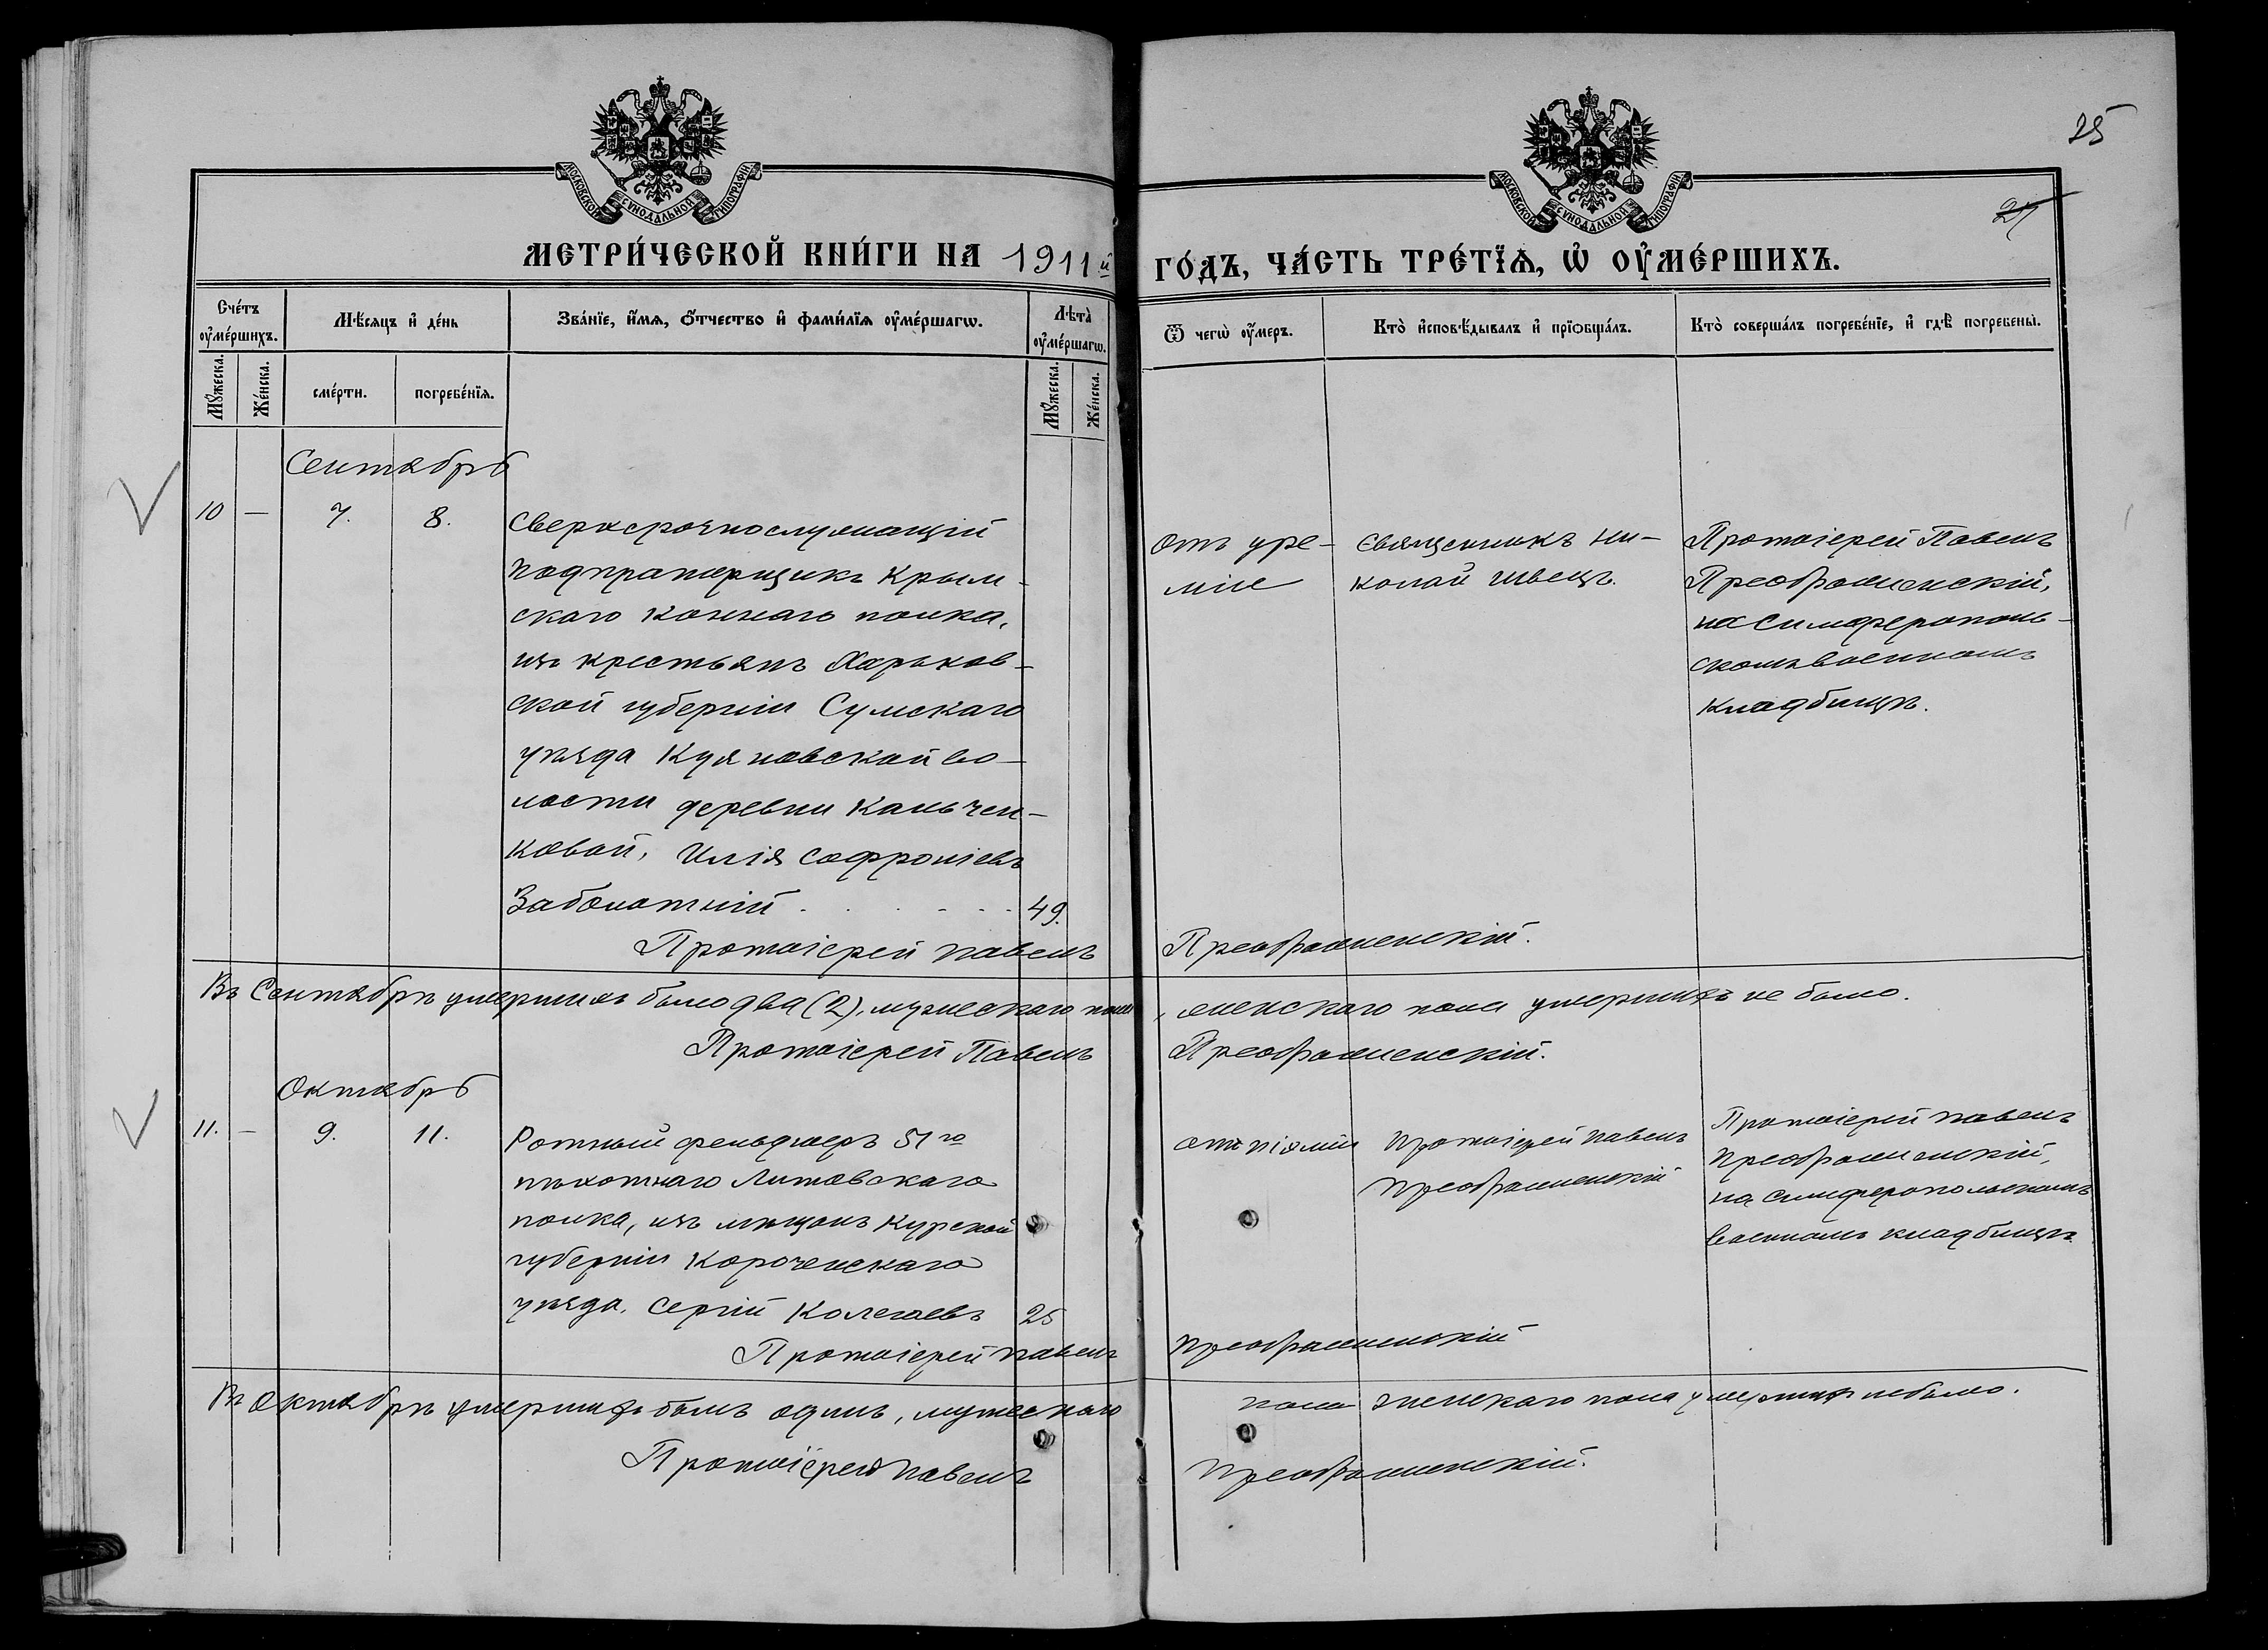 МОСКОВСКОЙ СУНОДАЛЬНОЙ ТИПОГРАФІИ
МОСКОВСКОЙ СУНОДАЛЬНОЙ ТИПОГРАФІИ
25
27
МЕТРИ́ЧЕСКОЙ КНИ́ГИ НА 1911й ГО́ДЪ, ЧА́СТЬ ТРЕ́ТЇѦ, Ѡ҆ ОУ҆МЕ́РШИХЪ.
Сче́тъ оу҆ме́ршихъ.
Мѣ́сяцъ и҆ де́нь
Зва́нїе, и҆́мѧ, ѻ҆́тчество и҆ фами́лїѧ оу҆ме́ршагѡ.
Лѣта̀ оу҆ме́ршагѡ.
Ѿ чегѡ̀ оу҆́меръ.
Кто̀ и҆сповѣ́дывалъ и҆ прїѻбща́лъ.
Кто̀ соверша́лъ погребе́нїе, и҆ гдѣ̀ погребены̀.
Мꙋ́жеска.
Же́нска.
сме́рти.
погребе́нїѧ.
Мꙋ́жеска.
Же́нска.
Сентябрь
10 — 7. 8.
Сверхсрочнослужащій
подпрапорщикъ Крым-
скаго коннаго полка,
изъ крестьянъ Харьков-
ской губерніи Сумскаго
уѣзда Куяновской во-
лости деревни Каньчен-
ковой, Илія Софроніевъ
Заболотній 49.
Отъ уре-
міи
Священникъ Ни-
колай Швецъ.
Протоіерей Павелъ
Преображенскій,
на Симферополь-
скомъ военномъ
кладбищѣ.
Протоіерей Павелъ Преображенскій.
Въ Сентябрѣ умершихъ было два (2), мужескаго пола, женскаго пола умершихъ не было.
Протоіерей Павелъ Преображенскій.
Октябрь
11. — 9. 11.
Ротный фельдшеръ 51го
пѣхотнаго Литовскаго
полка, изъ мѣщанъ Курской
губерніи Короченскаго
уѣзда, Сергій Колегаевъ 25
отъ піэміи
Протоіерей Павелъ
Преображенскій
Протоіерей Павелъ
Преображенскій,
на Симферопольскомъ
военномъ кладбищѣ
Протоіерей Павелъ Преображенскій
Въ Октябрѣ умершихъ былъ одинъ, мужескаго пола женскаго пола умершихъ не было.
Протоіерей Павелъ Преображенскій.